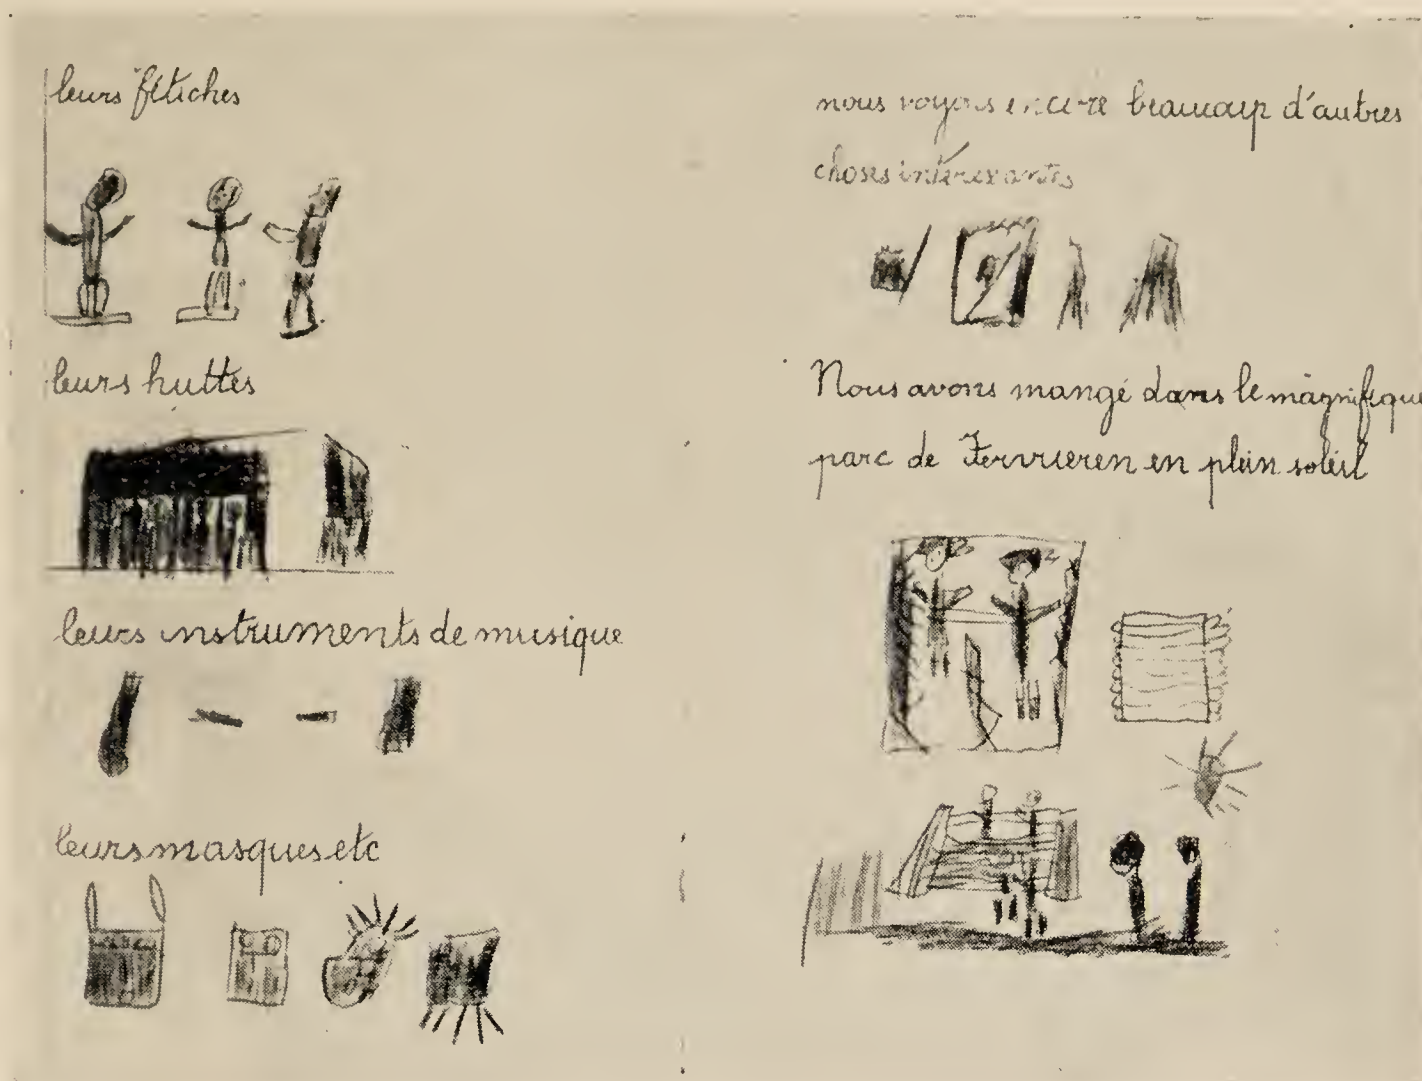 leurs fétiches
leurs huttes
leurs instruments de musique
leurs masques etc
nous voyons encore beaucoup d'autres
choses intéressantes
Nous avons mangé dans le magnifique
parc de Tervueren en plein soleil